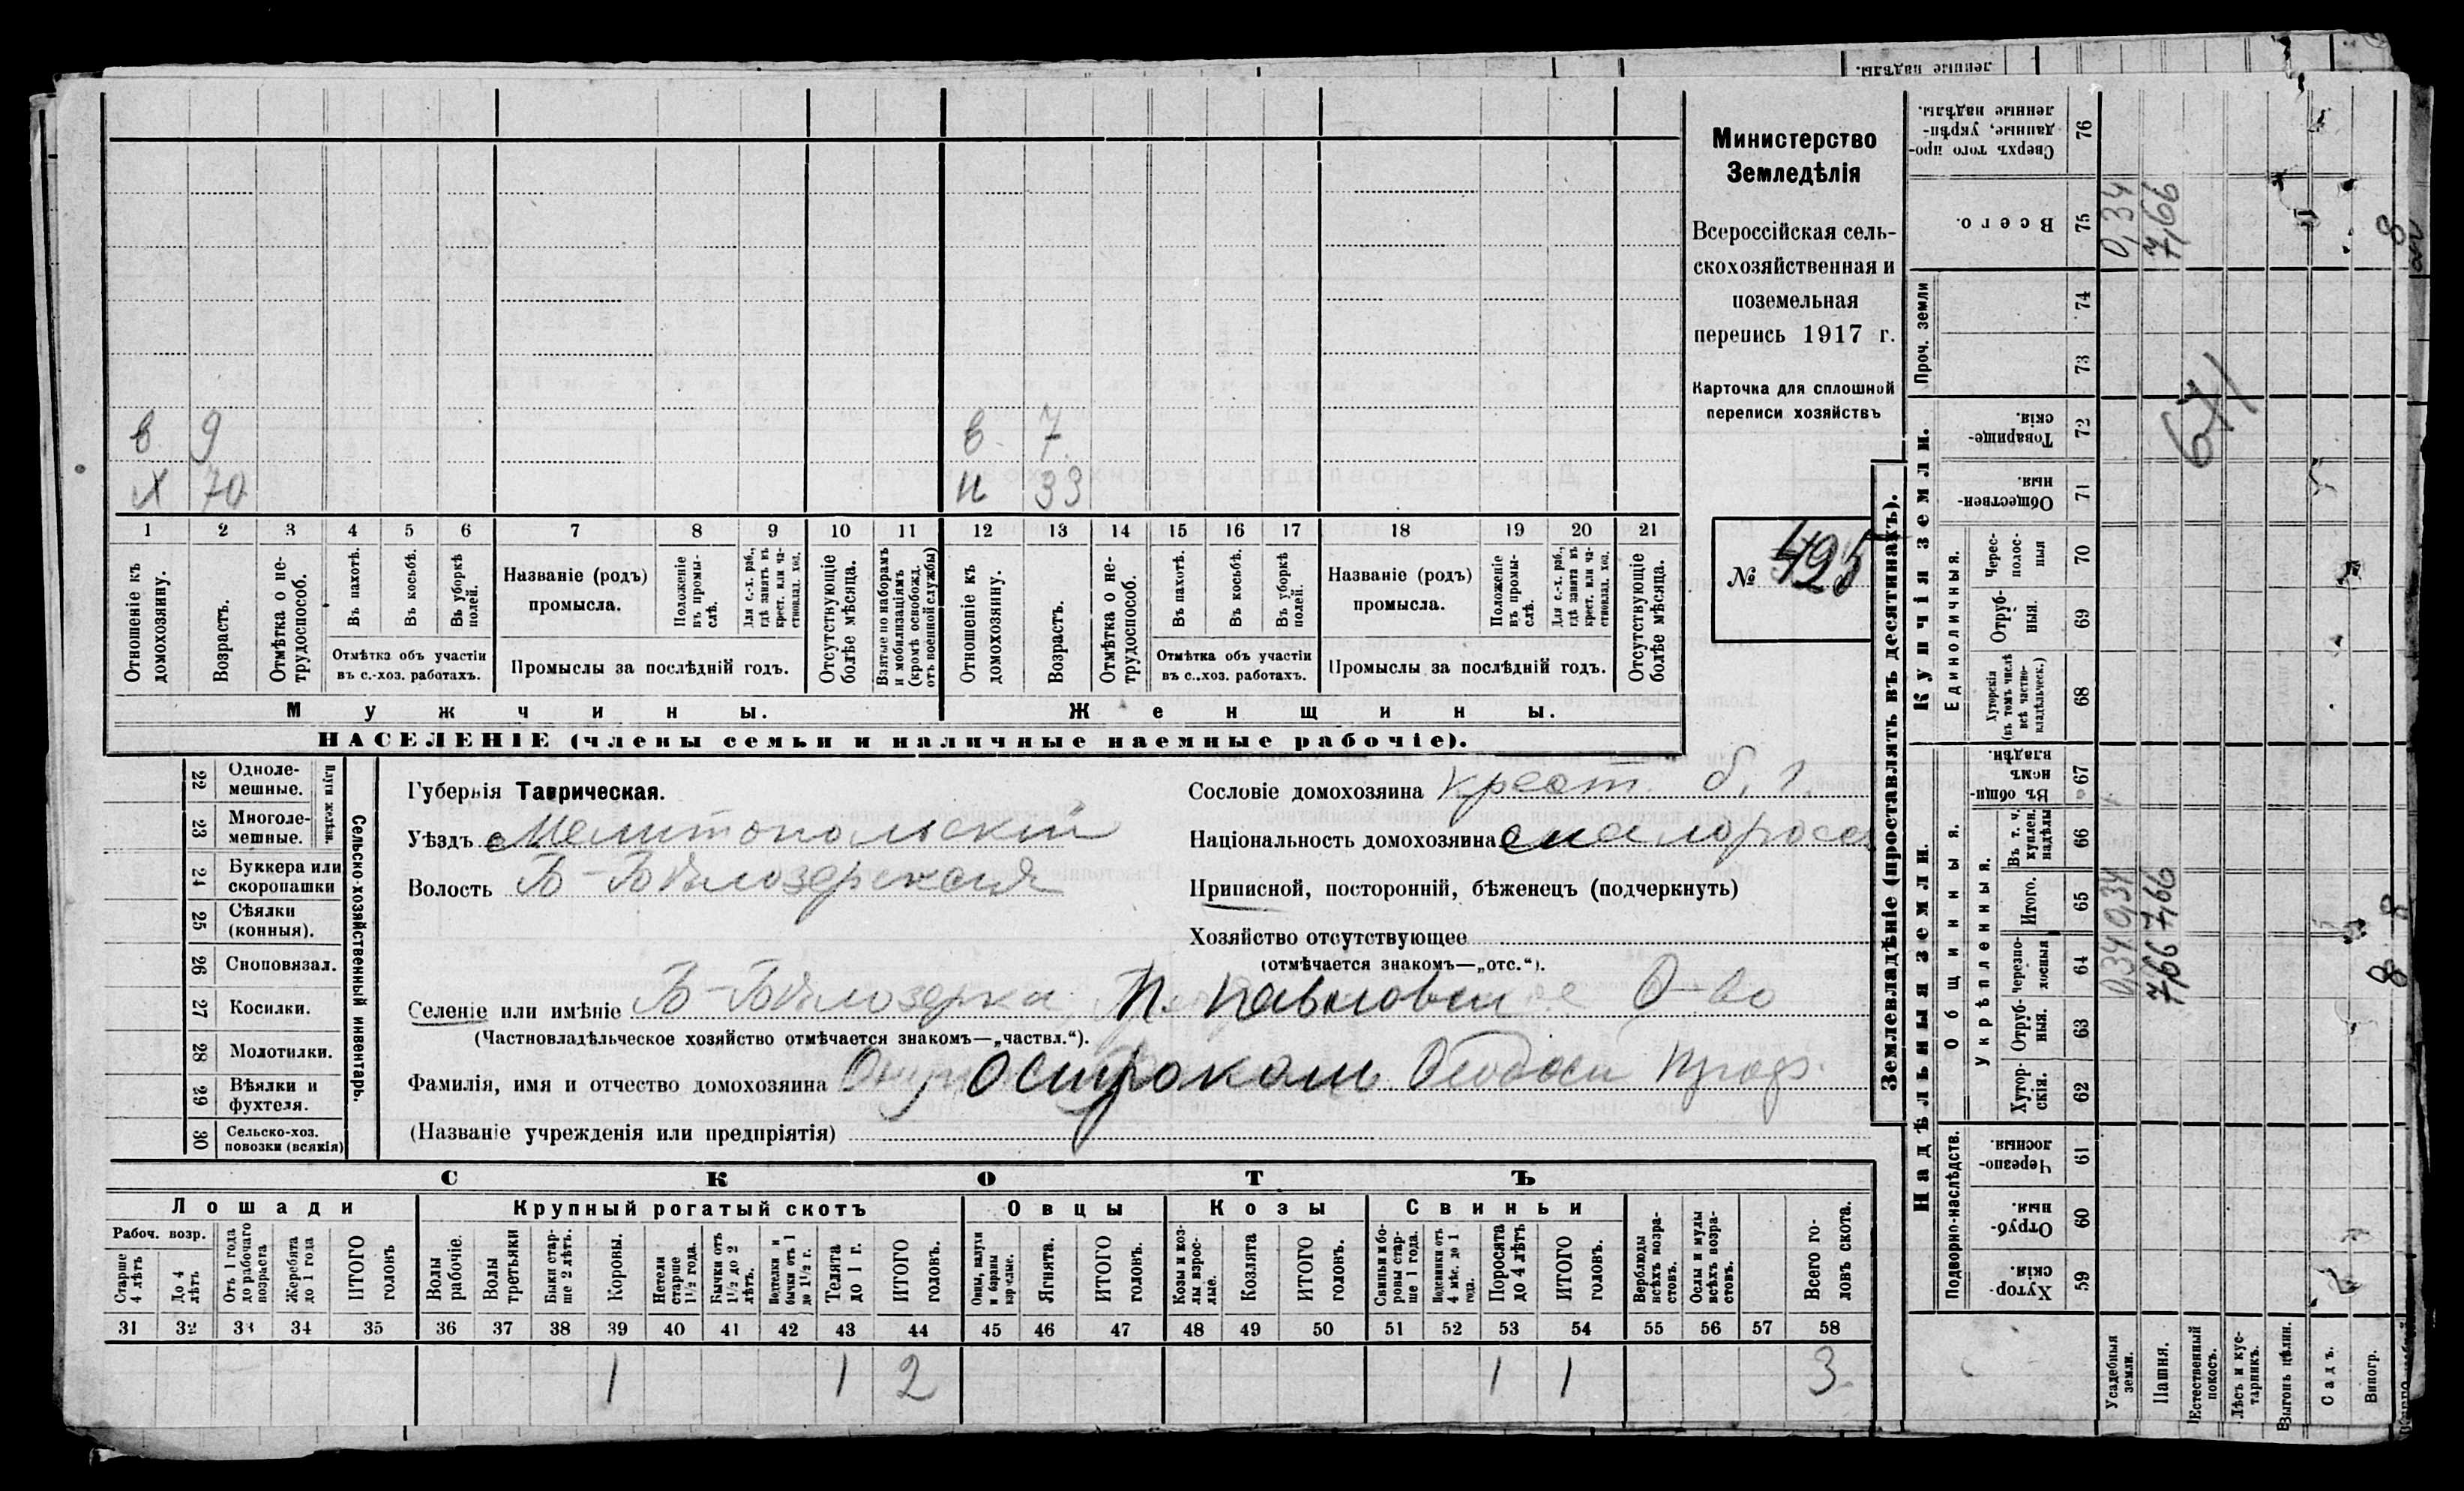 ленные надѣлы.
в 9 в. 7.
Х 70 н 33
1 2 3 4 5 6 7 8 9 10 11 12 13 14 15 16 17 18 19 20 21
Отношеніе къ домохозяину.
Возрастъ.
Отмѣтка о нетрудоспособ.
Въ пахотѣ.
Въ косьбѣ.
Въ уборкѣ полей.
Отмѣтка объ участіи
въ с.-хоз. работахъ.
Названіе (родъ)
промысла.
Положеніе въ промыслѣ.
Для с.-х. раб., гдѣ занятъ въ крест. или частновлад. хоз.
Промыслы за послѣдній годъ.
Отсутствующіе болѣе мѣсяца.
Взятые по наборамъ и мобилизаціямъ (кромѣ освобожд. отъ военной службы)
Отношеніе къ домохозяину.
Возрастъ.
Отмѣтка о нетрудоспособ.
Въ пахотѣ.
Въ косьбѣ.
Въ уборкѣ полей.
Отмѣтка объ участіи
въ с.-хоз. работахъ.
Названіе (родъ)
промысла.
Положеніе въ промыслѣ.
Для с.-х. раб., гдѣ занята въ крест. или частновлад. хоз.
Промыслы за послѣдній годъ.
Отсутствующіе болѣе мѣсяца.
Мужчины. Женщины.
НАСЕЛЕНІЕ (члены семьи и наличные наемные рабочіе).
Министерство
Земледѣлія
Всероссійская сель-
скохозяйственная и
поземельная
перепись 1917 г.
Карточка для сплошной
переписи хозяйствъ
№ 495
22 Одноле-
мешные.
23 Многоле-
мешные.
Плуги желѣзн.
24 Буккера или
скоропашки
25 Сѣялки
(конныя).
26 Сноповязал.
27 Косилки.
28 Молотилки.
29 Вѣялки и
фухтеля.
30 Сельско-хоз.
повозки (всякія)
Сельско-хозяйственный инвентарь.
Губернія Таврическая.
Уѣздъ Мелитопольскій
Волость Б-Бѣлозерская
Сословіе домохозяина крест. б. г.
Національность домохозяина малоросс
Приписной, посторонній, бѣженецъ (подчеркнуть)
Хозяйство отсутствующее
(отмѣчается знакомъ—„отс.“).
Селеніе или имѣніе Б-Бѣлозерка, Павловск О-во
(Частновладѣльческое хозяйство отмѣчается знакомъ—„частвл.“).
Фамилія, имя и отчество домохозяина Острокош Феодосій Проф.
(Названіе учрежденія или предпріятія)
СКОТЪ
Лошади Крупный рогатый скотъ Овцы Козы Свиньи
Рабоч. возр.
Старше 4 лѣтъ
До 4 лѣтъ
Отъ 1 года до рабочаго возраста
Жеребята до 1 года
ИТОГО головъ
Волы рабочіе.
Волы третьяки
Быки старше 2 лѣтъ.
Коровы.
Нетели старше 1½ года.
Бычки отъ 1½ до 2 лѣтъ.
Подтелки и бычки отъ 1 до 1½ г.
Телята до 1 г.
ИТОГО головъ.
Овцы, валухи и бараны взрослые.
Ягнята.
ИТОГО головъ.
Козы и козлы взрослые.
Козлята
ИТОГО головъ.
Свиньи и боровы старше 1 года.
Подсвинки отъ 4 мѣс. до 1 года.
Поросята до 4 лѣтъ
ИТОГО головъ.
Верблюды всѣхъ возрастовъ.
Ослы и мулы всѣхъ возрастовъ.
Всего головъ скота.
31 32 33 34 35 36 37 38 39 40 41 42 43 44 45 46 47 48 49 50 51 52 53 54 55 56 57 58
1 1 2 1 1 3
Землевладѣніе (проставлять въ десятинахъ).
Надѣльныя земли. Купчія земли. Проч. земли
Подворно-наслѣдств. Общинныя. Укрѣпленныя. Единоличныя.
Хуторскія. 59
Отрубныя. 60
Черезполосныя. 61
Хуторскія. 62
Отрубныя. 63
Черезполосныя 64
Итого. 65
Въ т. ч. куплен. надѣлы 66
Въ общинномъ владѣн. 67
Хуторскія (въ томъ числѣ всѣ частновладѣльческ.) 68
Отрубныя. 69
Чересполосныя 70
Общественныя. 71
Товарищескія. 72
73
74
Всего. 75
Сверхъ того проданные, укрѣпленные надѣлы. 76
Усадебныя земли. 0,34 0,34 0,34
Пашня. 7,66 7,66 7,66
Естественный покосъ.
Лѣсъ и кустарникъ.
Выгонъ цѣлин.
Садъ.
Виногр.
671
8 8 8